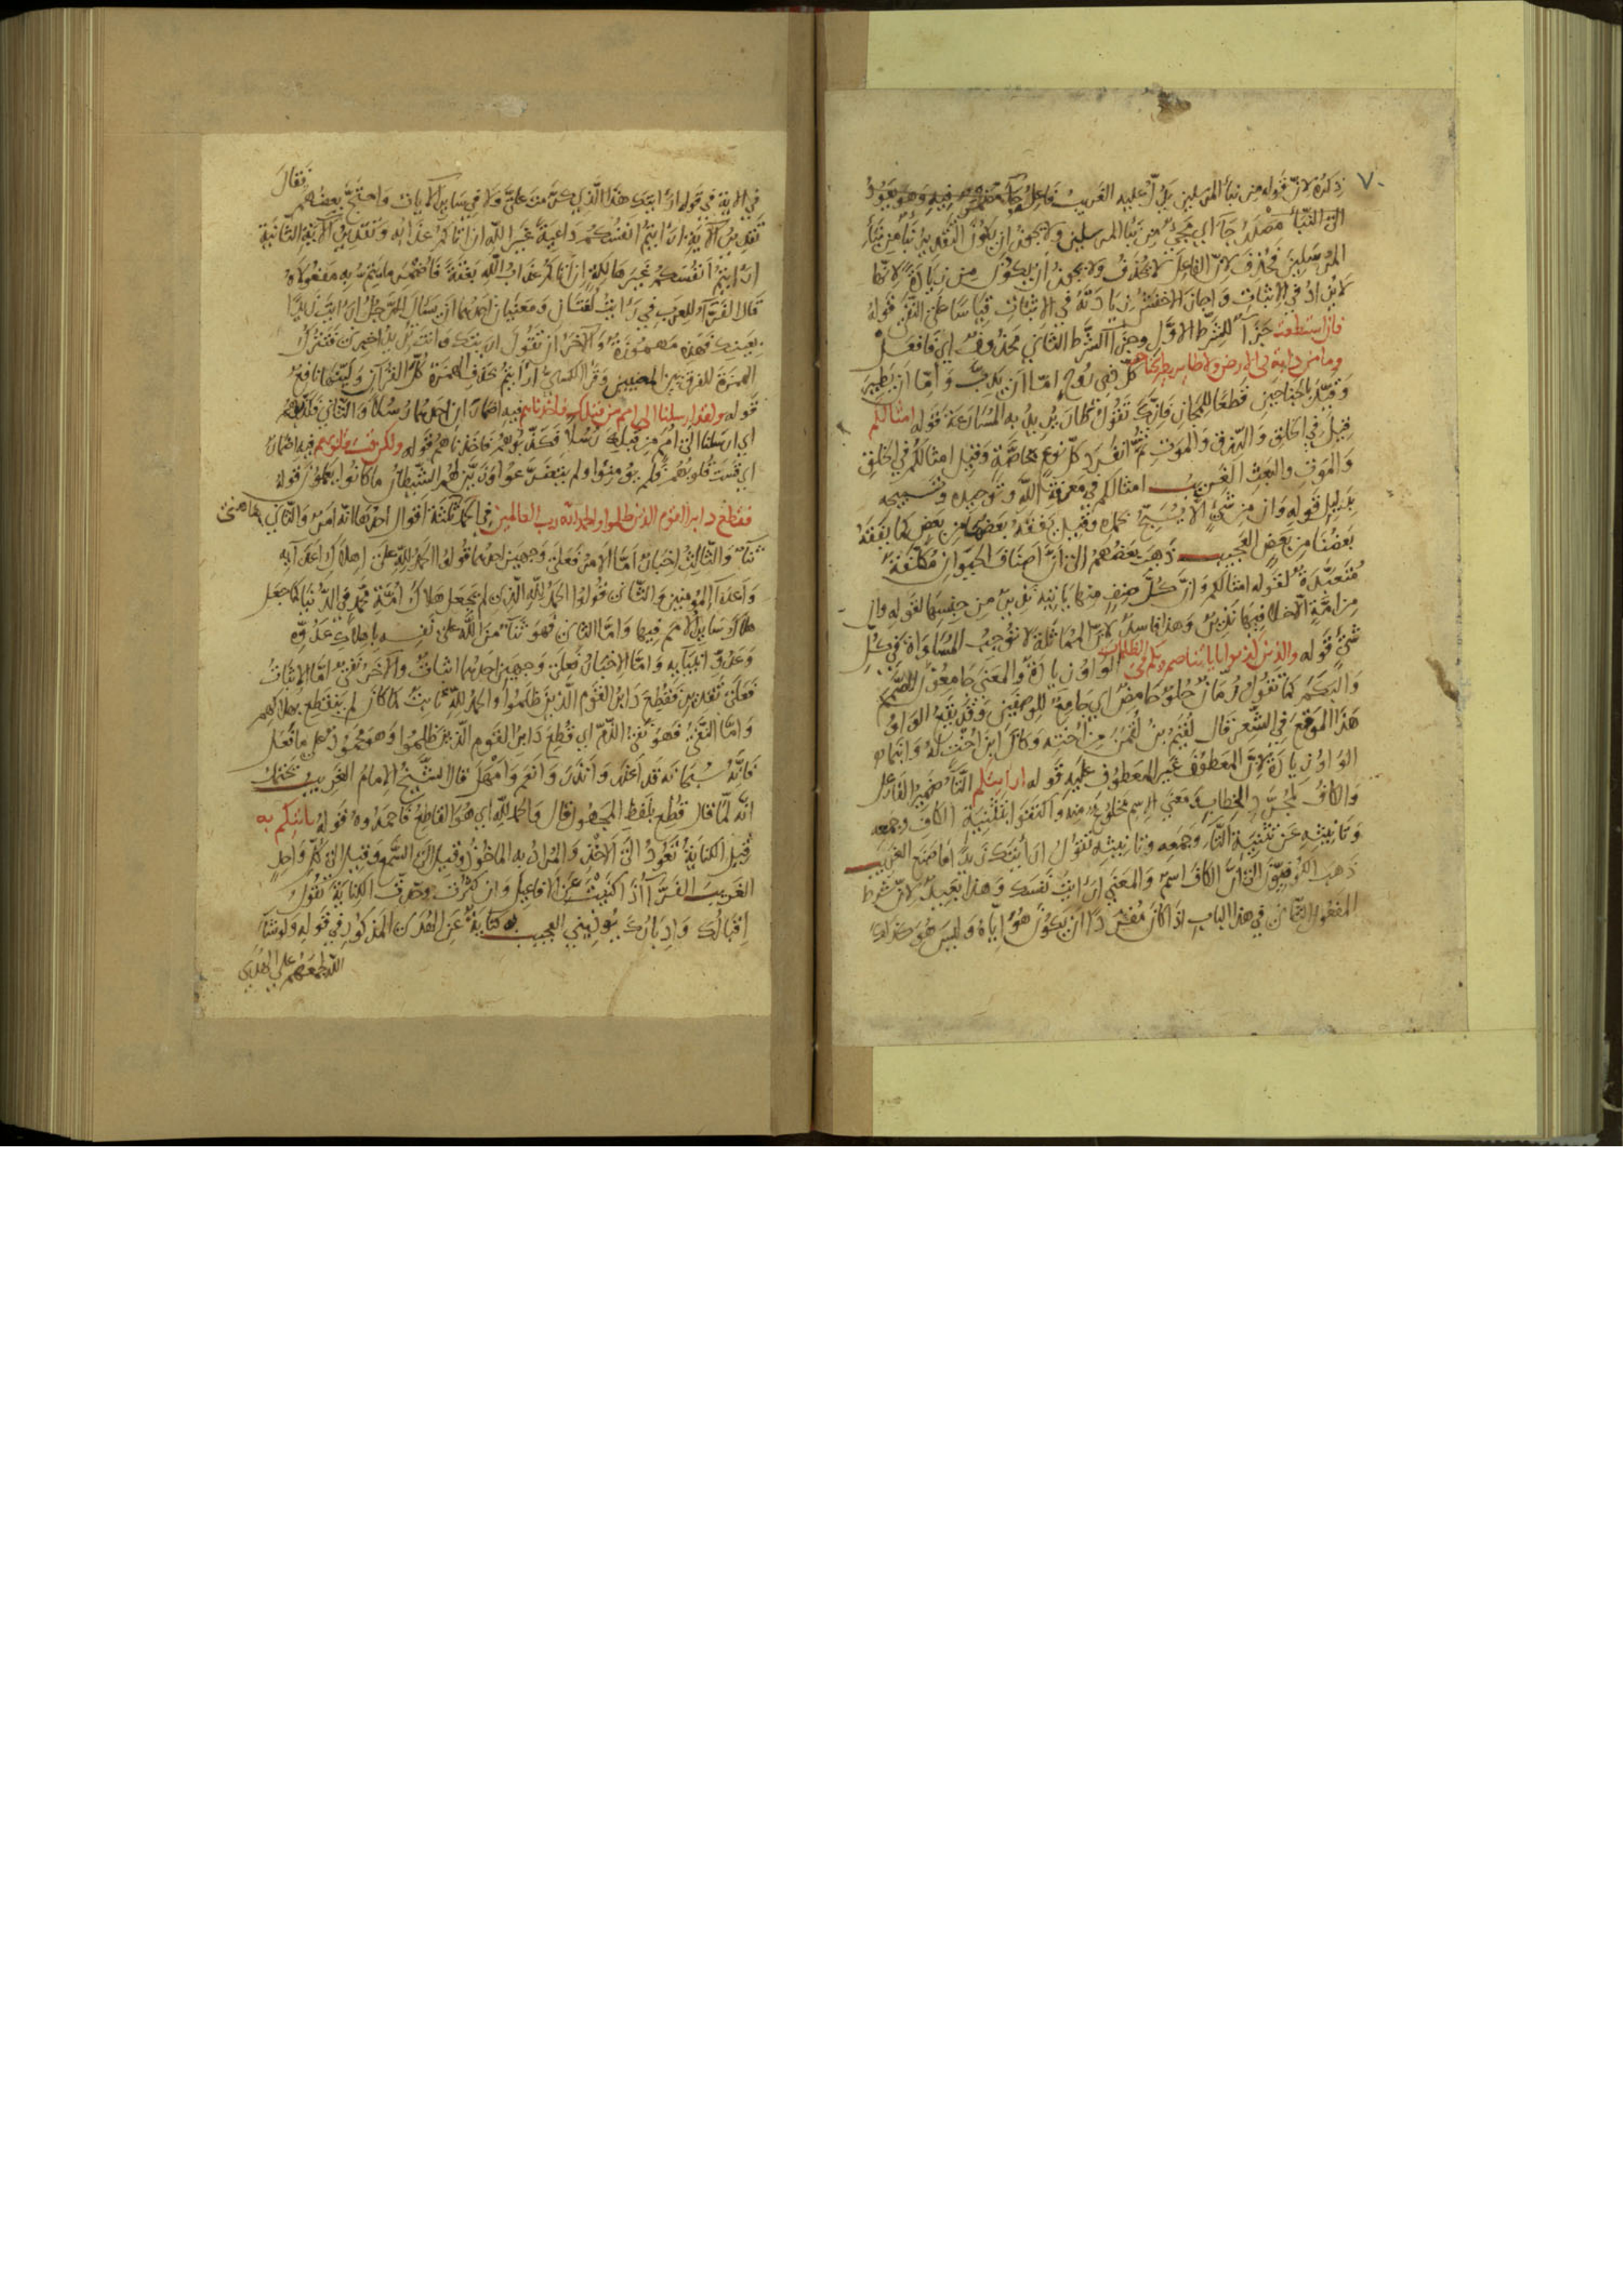 ٧٠
ذكره لان قوله من نبا المرسلين يدل عليه الغريب فاعل جا مضمر فيه وهو يعود
الى النبا مصدر جا اي مجيء من نبا المرسلين ولا يجوز ان يكون التقدير نبا من نبا
المرسلين فحذف لان الفاعل لا يحذف ولا يجوز ان يكون من زيادة لانها
لا تزاد في الاثبات واجاز الاخفش زيادته في الاثبات قياسا على النفي قوله
فان استطعت جزا للشرط الاول وجزا الشرط الثاني محذوف اي فافعل
وما من دابة في الارض ولا طاير يطير بجناحيه كل ذي روح اما ان يدب واما ان يطير
وقيد بالجناحين قطعا للمجاز فانك تقول طار يريد به المسارعة قوله امثالكم
قيل في الخلق والرزق والموت ثم انفرد كل نوع بخاصية وقيل امثالكم في الخلق
والموت والبعث الغريب امثالكم في معرفة الله وتوحيده وتسبيحه
بدليل قوله وان من شيء الا يسبح بحمده وقيل يفقه بعضها من بعض كما يفقه
بعضنا من بعض العجيب ذهب بعضهم الى ان اصناف الحيوان مكلفة
متعبدة لقوله امثالكم وان كل صنف منها ياتيه نذير من جنسها لقوله وان
من امة الا خلا فيها نذير وهذا فاسد لان المماثلة لا توجب المساواة في كل
شيء قوله والذين كذبوا باياتنا صم وبكم في الظلمات الواو زيادة والمعنى جامعون للصمم
والبكم كما تقول رمان حلو حامض اي جامعة للوصفين وقد يقع الواو
هذا الموقع في الشعر قال لقيم بن لقمن من اخته وكان ابن اخت له وابنما
الواو زيادة لان المعطوف غير المعطوف عليه قوله ارايتكم التا ضمير الفاعل
والكاف لمجرد الخطاب ومعنى الاسم مخلوع منه واكتفوا بتثنية الكاف وجمعه
وتانيثه عن تثنية التا وجمعه وتانيثه تقول ارايتك زيدا ما صنع الغريب
ذهب الكوفيون الى ان الكاف اسم والمعنى ارايت نفسك وهذا بعيد لان شرط
المفعول الثاني في هذا الباب اذا كان مفردا ان يكون هو اياه وليس هو كذلك
في الاية في قوله ارايتك هذا الذي كرمت علي ولا في ساير الايات واحتج بعضهم فقال
تقدير الاية ارايتم انفسكم داعية غير الله ان اتاكم عذابه وتقدير الاية الثانية
ارايتم انفسكم غير هالكة ان اتاكم عذاب الله بغتة
قال الفرا للعرب في رايت لغتان ومعنيان احدهما ان يسال الرجل ارايت زيدا
بعينك فهذه مهموزة والاخر ان تقول ارايتك وانت تريد اخبرني فتترك
الهمزة للفرق بين المعنيين وقرا الكسائي ارايتم بحذف الهمزة كل القران ولينها نافع
قوله ولقد ارسلنا الى امم من قبلك فاخذناهم فيه اضماران احدهما رسلا والثاني فكذبوهم
اي ارسلنا الى امم من قبلك رسلا فكذبوهم فاخذناهم قوله ولكن قست قلوبهم فيه اضمار
اي قست قلوبهم فلم يومنوا ولم يتضرعوا وزين لهم الشيطان ما كانوا يعملون قوله
فقطع دابر القوم الذين ظلموا والحمد لله رب العالمين في الحمد ثلثة اقوال احدها انه امر والثاني
ثنا والثالث اخبار اما الامر فعلى وجهين احدهما قولوا الحمد لله على اهلاك اعدايه
واعدا المومنين والثاني قولوا الحمد لله الذي لم يجعل هلاك امة محمد في الدنيا كما جعل
هلاك ساير الامم فيها واما الثاني فهو ثنا من الله على نفسه باهلاك عدوه
وعدو انبيايه واما الاخبار فعلى وجهين احدهما اثبات والاخر نفي اما الاثبات
فعلى تقدير فقطع دابر القوم الذين ظلموا والحمد لله ثابت كما كان لم ينقطع بهلاكهم
واما النفي فهو نفي الذم اي قطع دابر القوم الذين ظلموا وهو محمود على ما فعل
فانه سبحانه قد اعذر وانذر وانعم وامهل قال الشيخ الامام الغريب يحتمل
انه لما قال قطع بلفظ المجهول قال والحمد لله اي هو القاطع فاحمدوه قوله ياتيكم به
قيل الكناية تعود الى الاخذ والمراد به الماخوذ وقيل الى السمع وقيل الى كل واحد
الغريب الفرا اذا كنيت عن الافاعيل وان كثرت وحدت الكناية تقول
اقبالك وادبارك يوذيني العجيب به كناية عن الهدى المذكور في قوله ولو شا
الله لجمعهم على الهدى